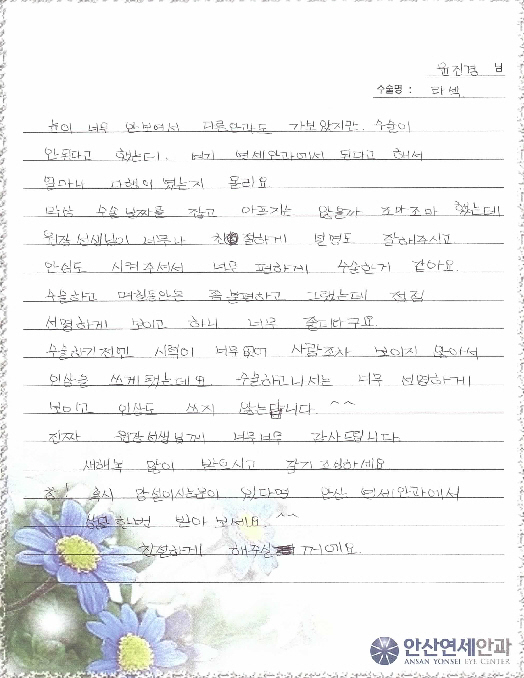 윤진경 님
수술명 : 라섹
눈이 너무 안보여서 다른안과도 가보았지만, 수술이
안된다고 했는데, 여기 연세안과에서 된다고 해서
얼마나 기뻤는지 몰라요
막상 수술날짜를 잡고 아프지는 않을까 조마조마 했는데
원장선생님이 너무나 친절하게 설명도 잘해주시고
안심도 시켜주셔서 너무 편하게 수술한거 같아요.
수술하고 며칠동안은 쫌 불편하고 그랬는데 점점
선명하게 보이고 하니 너무 좋더라구요.
수술하기전엔 시력이 너무 사람조차 보이지 않아서
인상을 쓰게됐는데요 수술하고나서는 너무 선명하게
보이고 인상도 쓰지 않는답니다. ^^
진짜 원장선생님께 너무너무 감사드립니다.
새해복 많이 받으시고 감기 조심하세요
참! 혹시 망설이시는분이 있다면 안산 연세안과에서
상담 한번 받아 보세요. ^^
친절하게 해주실 꺼에요.
안산연세안과
ANSAN YONSEI EYE CENTER